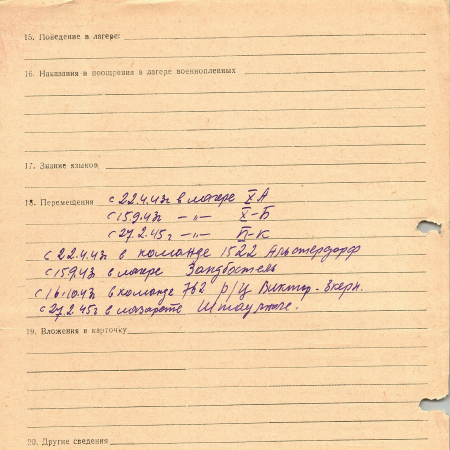 15. Поведение в лагере:
16. Наказания и поощрения в лагере военнопленных
17. Знание языков
18. Перемещения с 22.4.43г в лагере X А
с 15.9.43г —„— X-Б
с 27.2.45г —„—
с 22.4.43г в команде 1522
с 15.9.43г в лагере Зандбостель
с 16.10.43г в команде 762 р/ц Виктор-
с 27.2.45г в лазарете
19. Вложения в карточку
20. Другие сведения